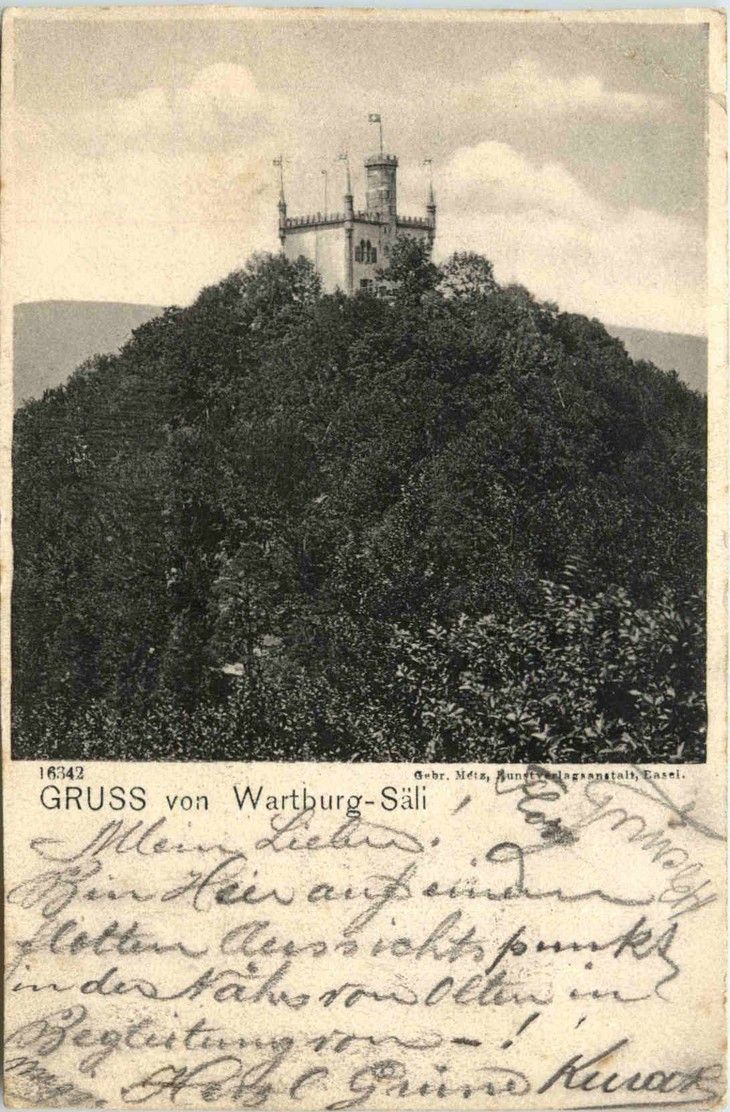 16342
Gebr. Metz, Kunstverlagsanstalt, Basel.
GRUSS von Wartburg-Säli
Mein Lieber!
Bin Hier auf einem
flotten Aussichtspunkt
in der Nähe von Olten in
Begleitung von – !
Herzl Grüne